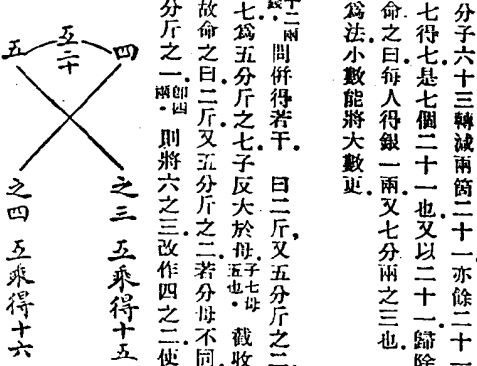 分子六十三轉減兩箇二十一亦餘二十一
七得七是七個二十一也又以二十一歸除
命之曰每人得銀一兩又七分兩之三也
爲法小數能將大數更
十二兩問併得若干 曰二斤又五分斤之二
七爲五分斤之七子反大於母子七母五也截收
故命之曰二斤又五分斤之二若分母不同
分斤之一即四兩則將六之三改作四之二使
四
之三 互乘得十五
互二十
五
之四 互乘得十六